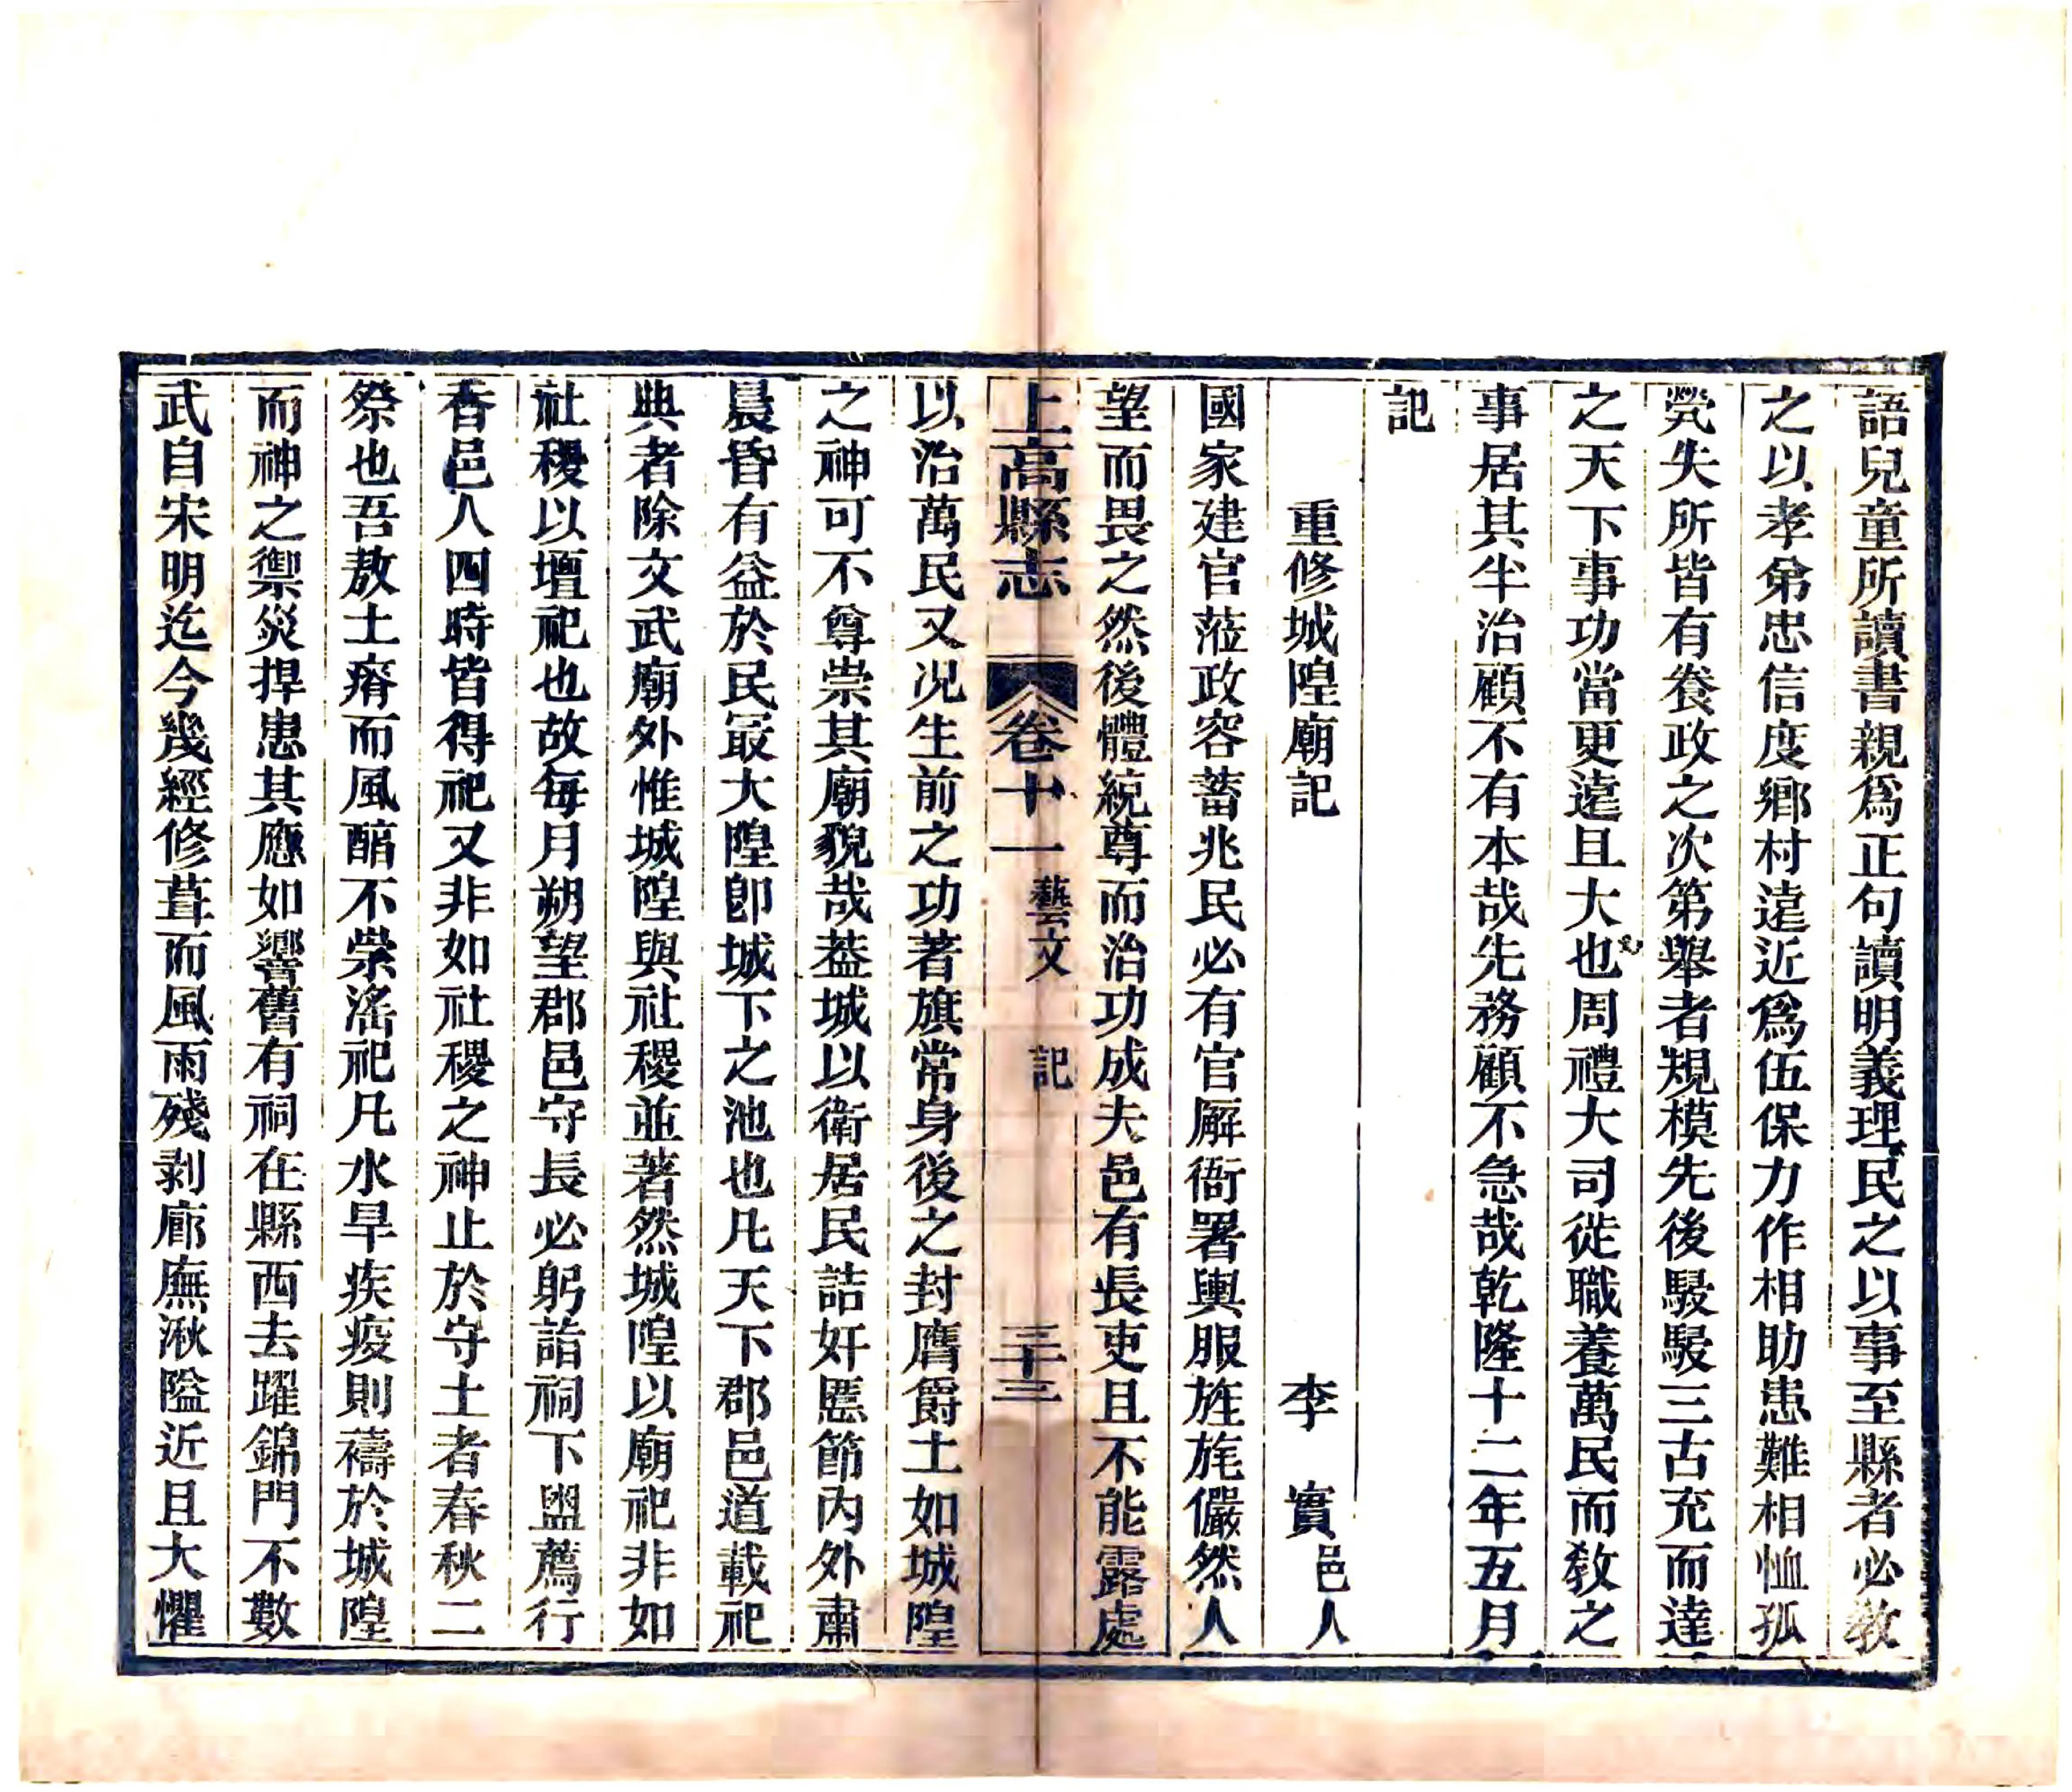 語兒童所讀書親爲正句讀明義理民之以事至縣者必教
之以孝弟忠信度鄉村遠近爲伍保力作相助患難相恤孤
煢失所皆有養政之次第舉者規模先後駸駸三古充而達
之天下事功當更遠且大也周禮大司徒職養萬民而教之
事居其半治顧不有本哉先務顧不急哉乾隆十二年五月
記
重修城隍廟記 李實邑人
國家建官蒞政容蓄兆民必有官廨衙署輿服旌旄儼然人
望而畏之然後體統尊而治功成夫邑有長吏且不能露處
上高縣志 卷十一 藝文 記 三十三
以治萬民又況生前之功著旗常身後之封膺爵土如城隍
之神可不尊崇其廟貌哉葢城以衛居民詰奸慝節內外肅
晨昏有益於民冣大隍卽城下之池也凡天下郡邑道載祀
典者除文武廟外惟城隍與社稷並著然城隍以廟祀非如
社稷以壇祀也故每月朔望郡邑守長必躬詣祠下盥薦行
香邑人四時皆得祀又非如社稷之神止於守土者春秋二
祭也吾敖土瘠而風醕不崇滛祀凡水旱疾疫則禱於城隍
而神之禦災捍患其應如響舊有祠在縣西去躍錦門不數
武自宋明迄今幾經修葺而風雨殘剥廊廡湫隘近且大懼